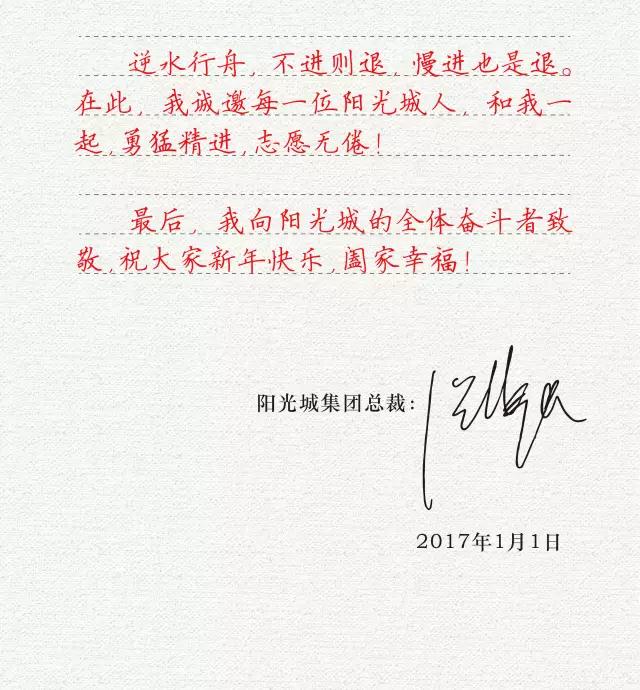 逆水行舟,不进则退,慢进也是退。
在此,我诚邀每一位阳光城人,和我一
起,勇猛精进,志愿无倦!
最后,我向阳光城的全体奋斗者致
敬,祝大家新年快乐,阖家幸福!
阳光城集团总裁:
2017年1月1日